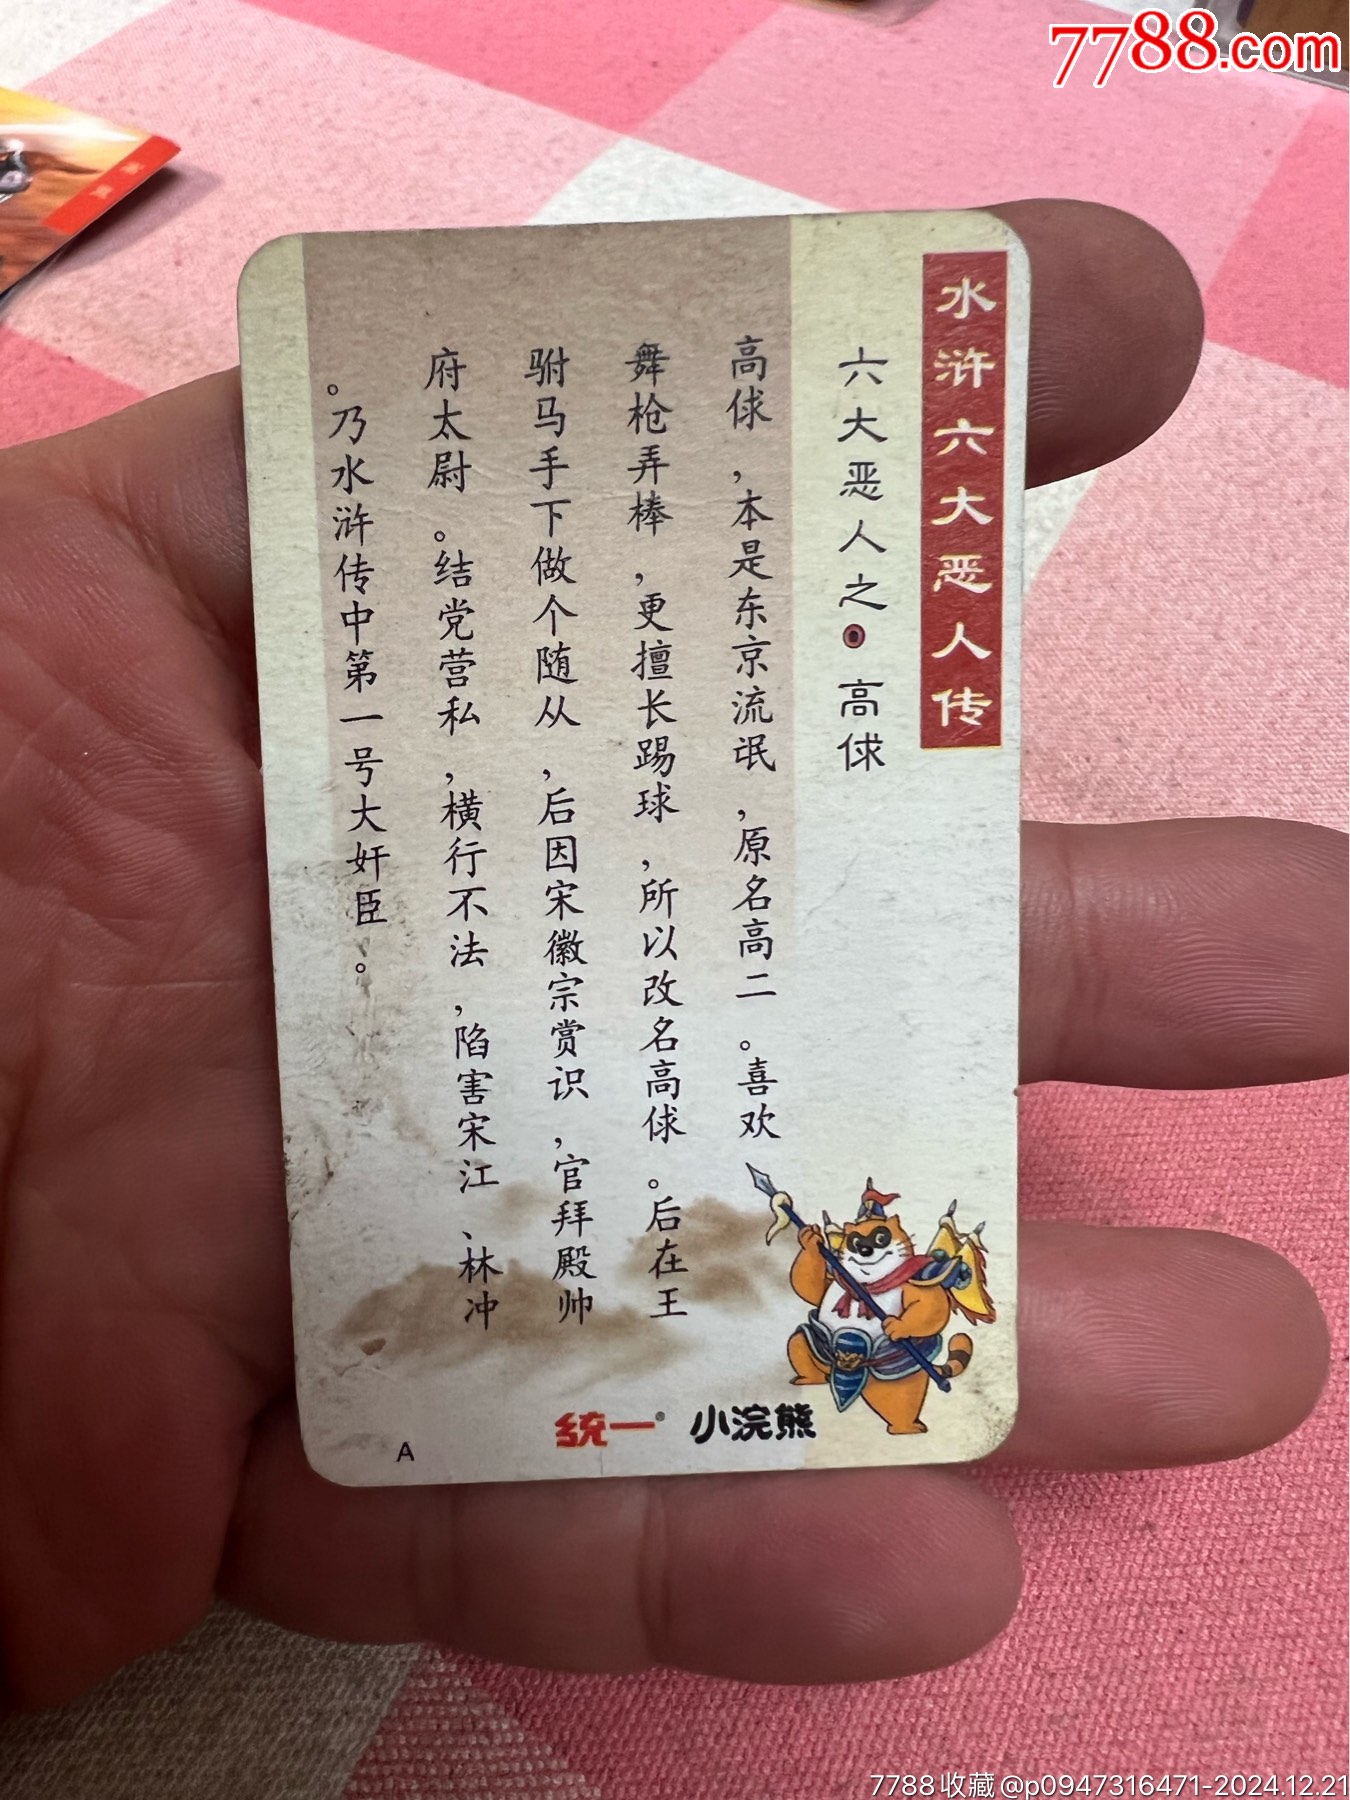 7788.com
水浒六大恶人传
六大恶人之 高俅
高俅,本是东京流氓,原名高二。喜欢
舞枪弄棒,更擅长踢球,所以改名高俅。后在王
驸马手下做个随从,后因宋徽宗赏识,官拜殿帅
府太尉。结党营私,横行不法,陷害宋江、林冲
。乃水浒传中第一号大奸臣。
统一® 小浣熊
A
7788收藏@p0947316471-2024.12.21